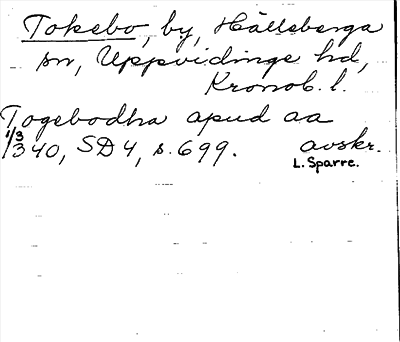 Tokebo, by, Hälleberga
sn, Uppvidinge hd,
Kronob. l.
Togebodha apud aa
1/3 340, SD 4, s. 699. avskr.
L. Sparre.